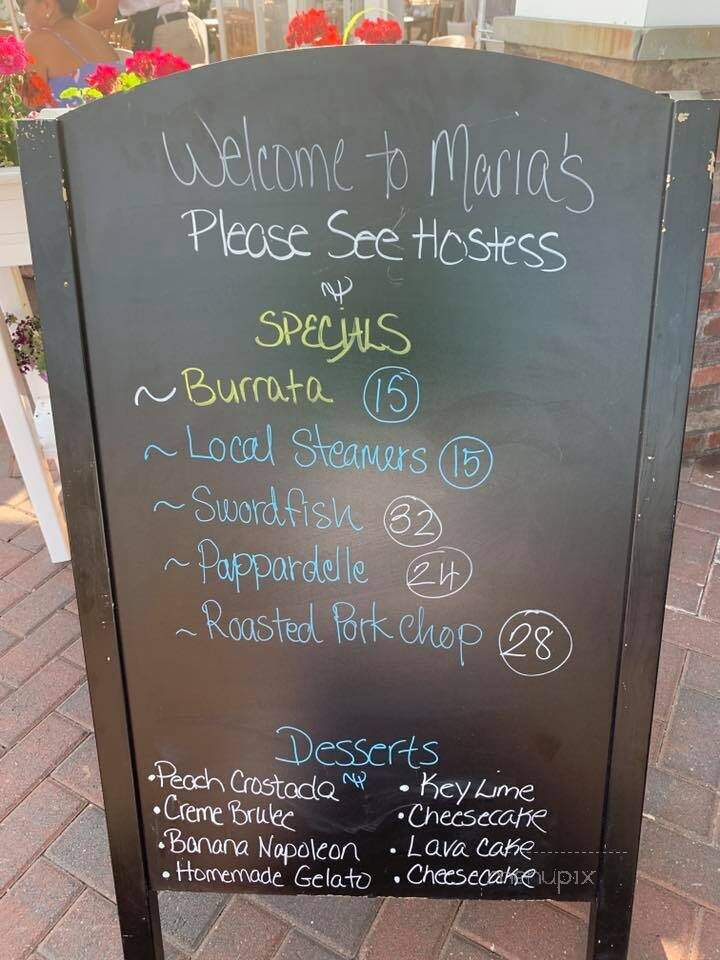 Welcome to Maria's
Please See Hostess
SPECIALS
~ Burrata 15
~ Local Steamers 15
~ Swordfish 32
~ Pappardelle 24
~ Roasted Pork Chop 28
Desserts
• Peach Crostada
• Creme Brulee
• Banana Napoleon
• Homemade Gelato
• Key Lime
• Cheesecake
• Lava Cake
• Cheesecake
menupix